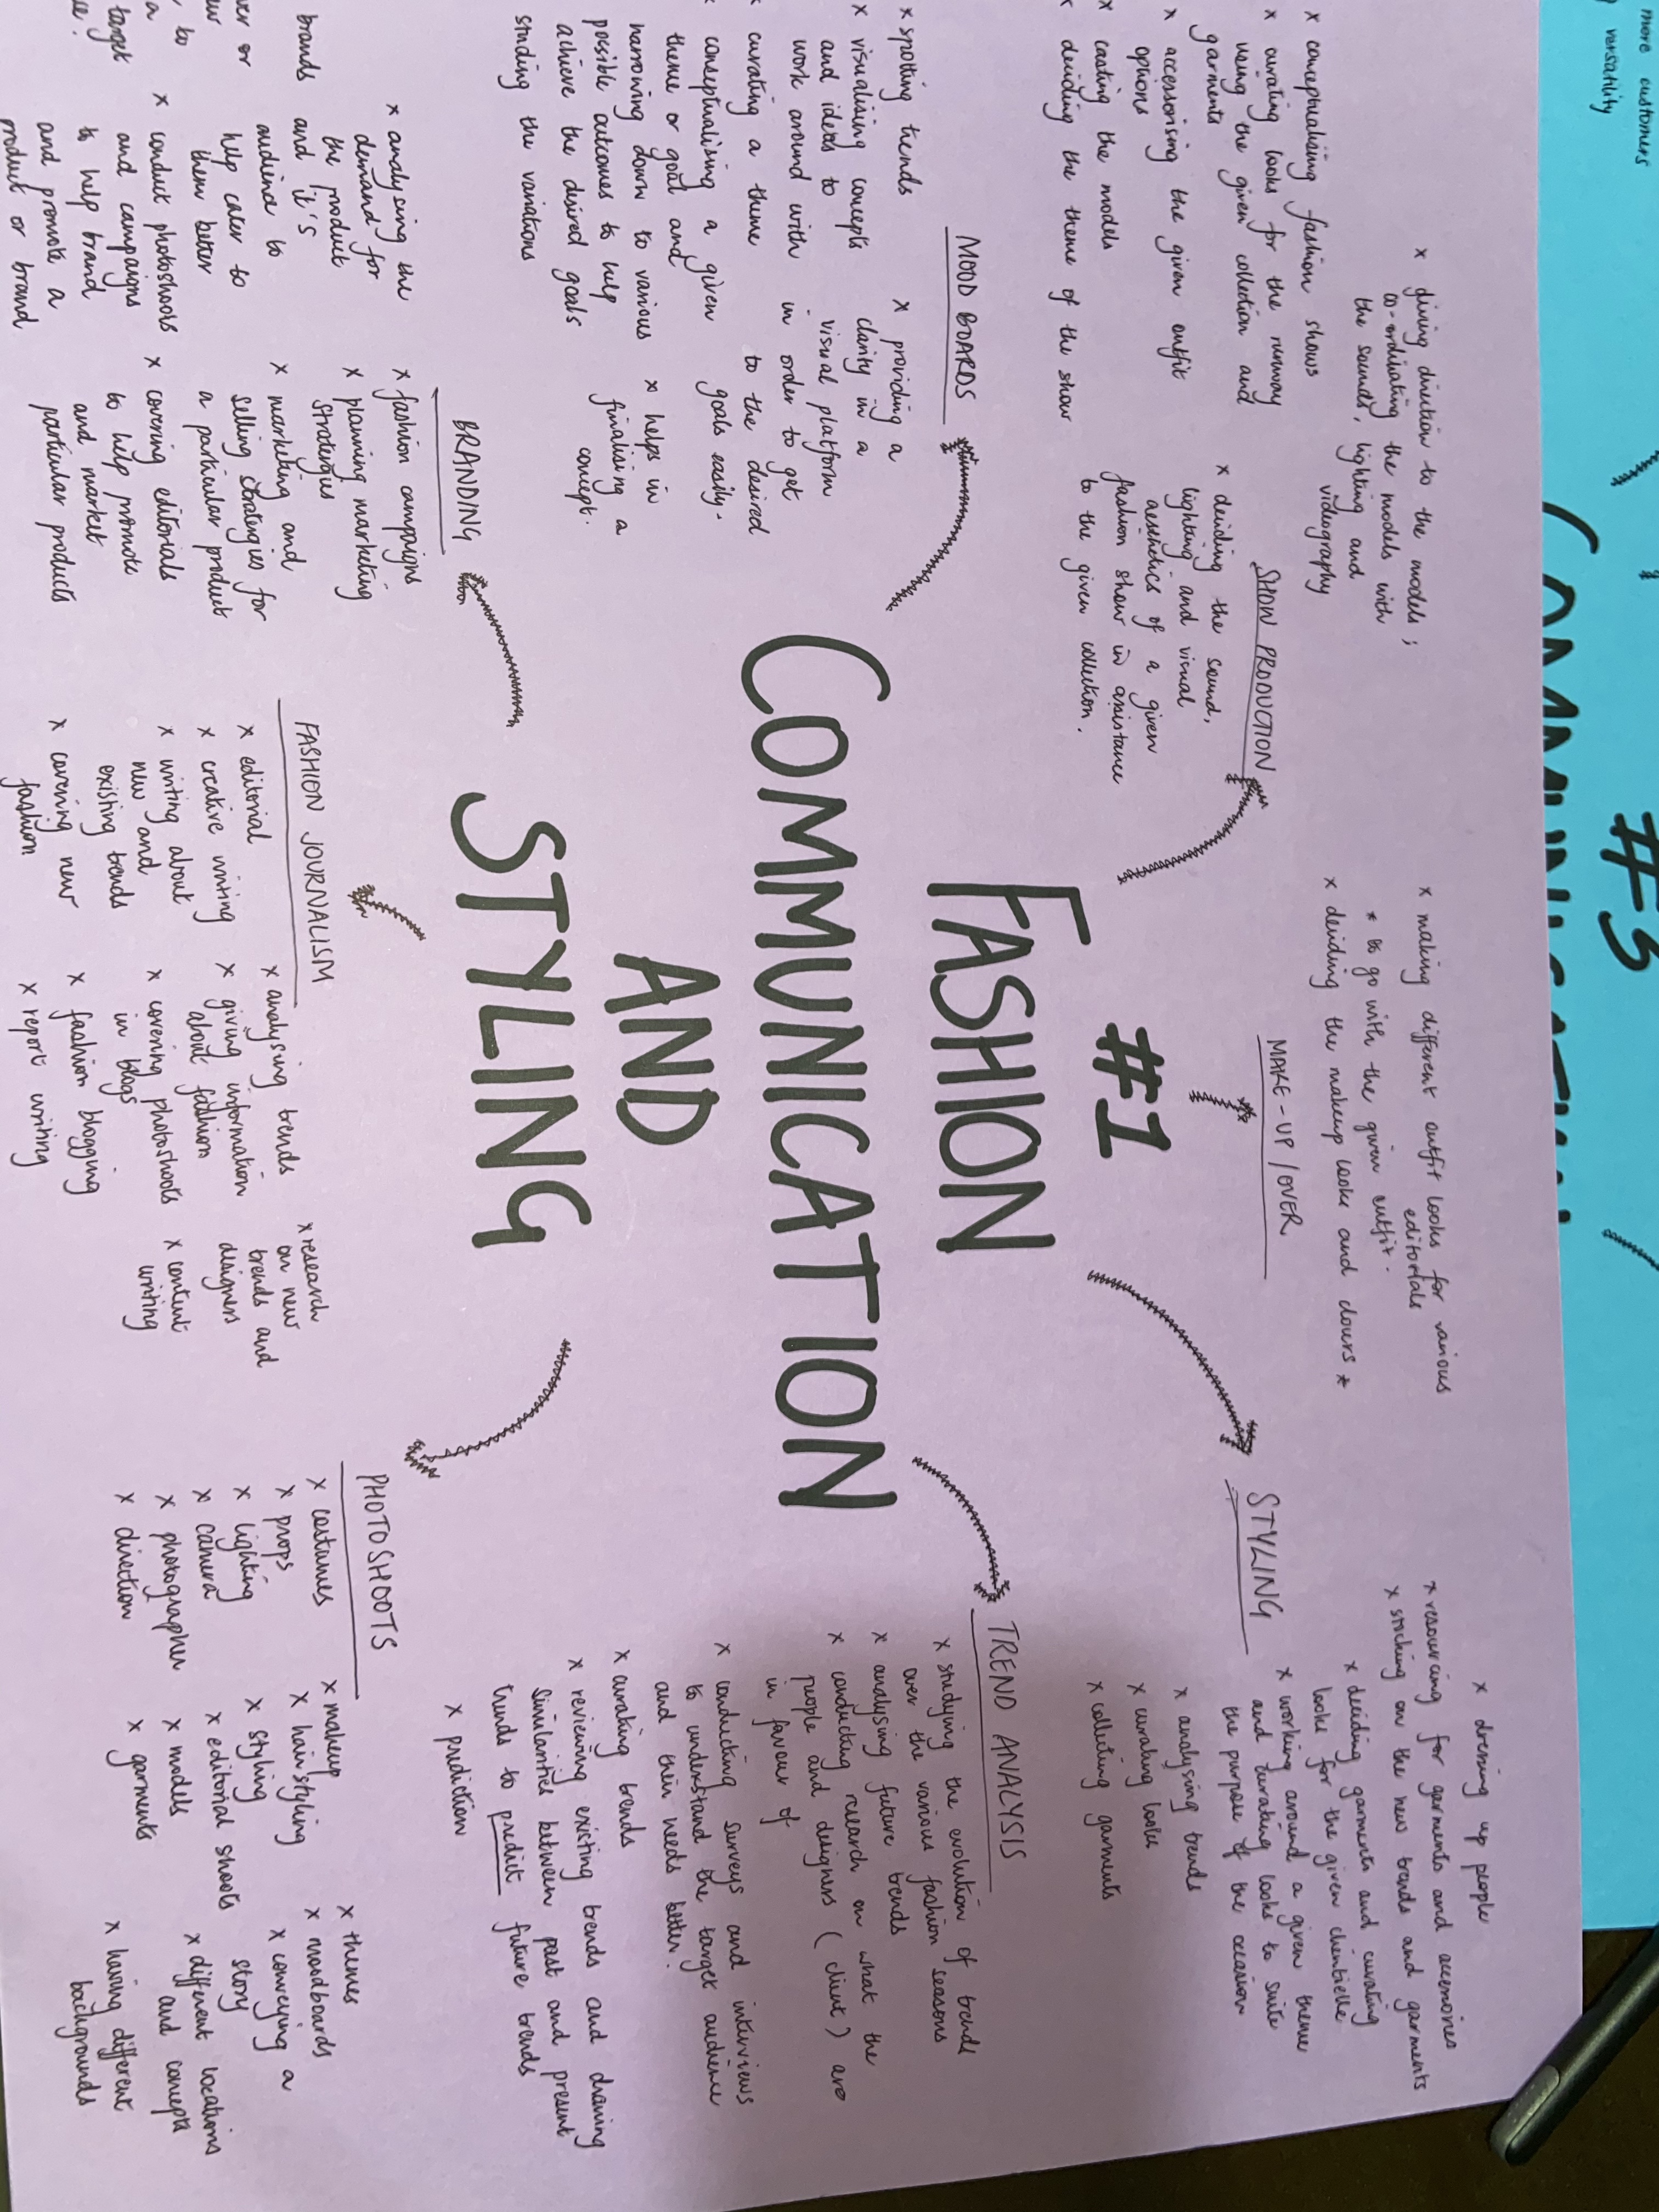 more customers
versatility
#3
COMMUNICATION
#1
FASHION
COMMUNICATION
AND
STYLING
SHOW PRODUCTION
x giving direction to the models ;
co-ordinating the models with
the sounds, lighting and
videography
x conceptualising fashion shows
x curating looks for the runway
using the given collection and
garments
x accessorising the given outfit
options
x casting the models
x deciding the theme of the show
x deciding the sound,
lighting and visual
aesthetics of a given
fashion show in assistance
to the given collection.
MAKE-UP/OVER
x making different outfit looks for various
editorials
* to go with the given outfit.
x deciding the makeup looks and colours *
STYLING
x dressing up people
x resourcing for garments and accessories
x stocking on the new trends and garments
x deciding garments and curating
looks for the given clientielle
x working around a given theme
and curating looks to suite
the purpose of the occasion
x analysing trends
x curating looks
x collecting garments
MOOD BOARDS
x spotting trends
x visualising concepts
and ideas to
work around with
x curating a theme
x conseptualising a given
theme or goal and
narrowing down to various
possible outcomes to help
achieve the desired goals
studing the variations
x providing a
clarity in a
visual platform
in order to get
to the desired
goals easily.
x helps in
finalising a
concept.
TREND ANALYSIS
x studying the evolution of trends
over the various fashion seasons
x analysing future trends
x conducting research on what the
people and designers (client) are
in favour of
x conducting surveys and interviews
to understand the target audience
and their needs better.
x curating trends
x reviewing existing trends and drawing
similarities between past and present
trends to predict future trends
x prediction
BRANDING
brands
or
to
a
target
x analysing the
demand for
the product
and it's
audience to
help cater to
them better
x conduct photoshoots
and campaigns
to help brand
and promote a
product or brand
x fashion campaigns
x planning marketing
strategies
x marketing and
selling strategies for
a particular product
x covering editorials
to help promote
and market
particular products
FASHION JOURNALISM
x editorial
x creative writing
x writing about
new and
existing trends
x covering new
fashion
x analysing trends
x giving information
about fashion
x covering photoshoots
in blogs
x fashion blogging
x report writing
x research
on new
trends and
designers
x content
writing
PHOTOSHOOTS
x costumes
x props
x lighting
x camera
x photographer
x direction
x makeup
x hairstyling
x styling
x editorial shoots
x models
x garments
x themes
x moodboards
x conveying a
story
x different locations
and concepts
x having different
backgrounds